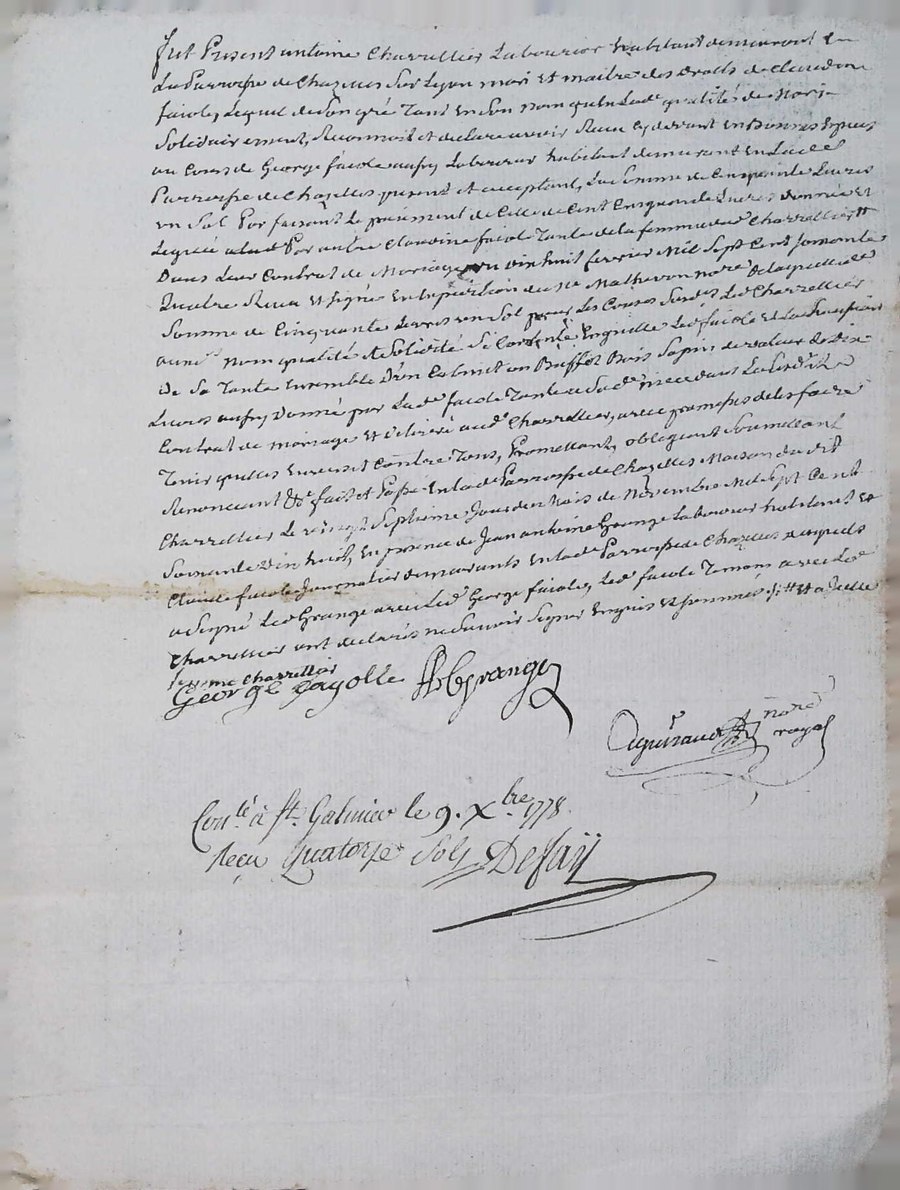 fut Present antoine Charrellier Laboureur habitant demeurant en
La Parroisse de Chazelles Sur Lyon mari et maitre des droits de claudine
faiole, Lequel de Son gré Tant en Son nom qu'en Lad. qualités de Mari
Solidairement, Reconnoit et declare avoir Receu cy devant en Bonnes Especes
au Cours de George faiole aussy Laboureur habitant demeurant en Lad.
Parroisse de Chazelles present et acceptant, La Somme de Cinquante Livres
un Sol Par faisant Le payement de Celle de Cent Cinquante Livres donnée et
Leguée Par autre Claudine faiole Tante de la femme dud. Charrellier
Dans Leur Contrat de Mariage du dix huit fevrier Mil Sept Cent soixante
Quatre Receu et Signé Me Matheron nore De laquelle
Somme de Cinquante Livres un Sol pour Les Causes Susd. Led. Charrellier
aud. nom qualité et Solidité Se Contente En quitte Led. faiole et La
de Sa Tante Ensemble D'un Cabinet ou Buffet Bois Sapin de valeur de dix
Livres aussy Donné par Lad. faiole Tante a Sad. niece dans Led.
Contrat de mariage Et delivré aud. Charrellier, avec promesse de les faire
Tenir quittes Envers et Contre Tous, Promettant, obligeant Soumettant
Renonceant &c fait et Passé En lad. Parroisse de Chazelles Maison dudit
Charrellier Le vingt Septieme Jour du mois de Novembre Mil Sept Cent
Soixante dix huit, En presence de Jean antoine Grange Laboureur habitant et
Claude faiole Journalier demeurants En lad. Parroisse de Chazelles desquels
a Signé Led. Grange avec Led. George faiole, Led. faiole Temoin avec Led.
Charrellier ont declarés ne Savoir Signer Enquis Et Sommés
George fayolle Grange
nore
royal
Conlé à St. Galmier le 9. Xbre 1778.
reçu Quatorze Sols Defay